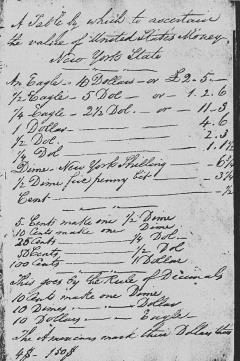 A Table by which to ascertain
the value of United States Money
New York State
An Eagle - 10 Dollars - or £2 - 5 -
1/2 Eagle - 5 Dol - or - 1. 2. 6
1/4 Eagle - 2 1/2 Dol. - or - 11 - 3
1 Dollar - 4. 6
1/2 Dol. - 2. 3
1/4 Dol - 1. 1 1/2
Dime New York Shilling - 6 3/4
1/2 Dime five penny bit - 3 1/4
Cent - 1/2
5 Cents make one 1/2 Dime
10 Cents make one Dime
25 Cents - 1/4 Dol -
50 Cents - 1/2 Dol
100 Cents - 1 Dollar
This goes by the Rule of Decimals
10 Cents make one Dime
10 Dimes - Dollar
10 Dollars - Eagle
The Americans mark their Dollars